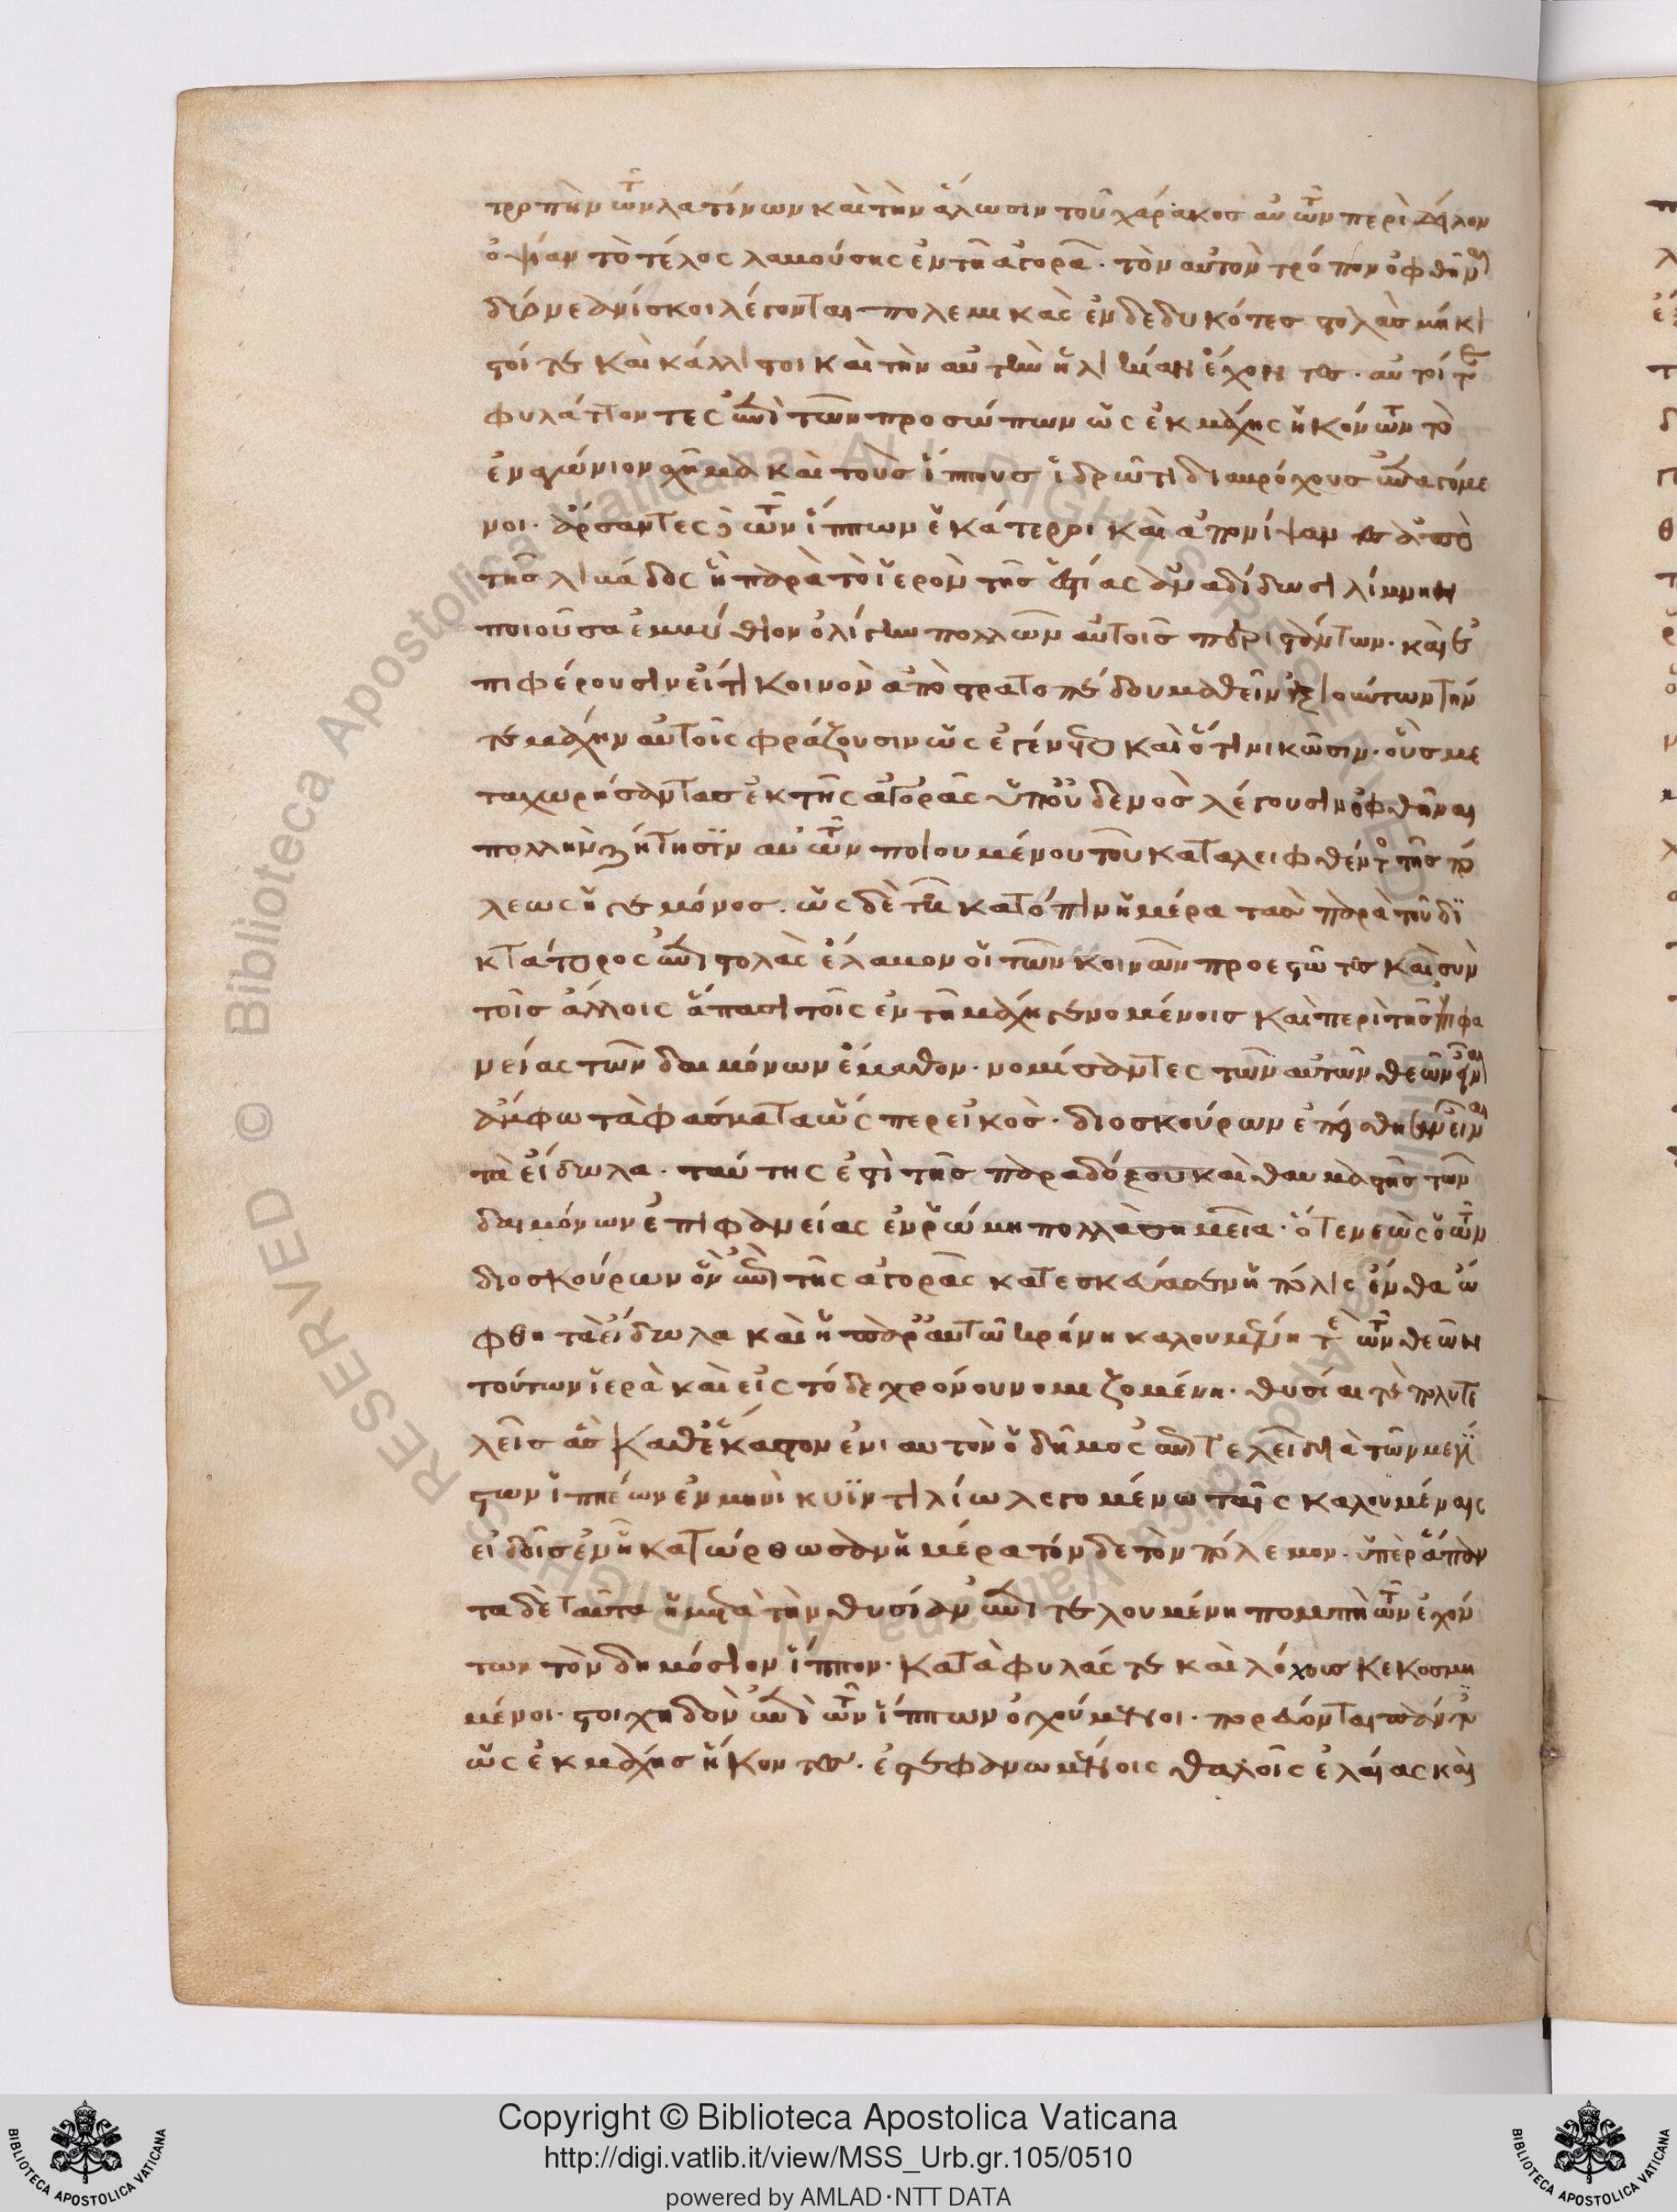 τροπὴν τῶν λατίνων καὶ τὴν ἅλωσιν τοῦ χάρακος αὐτῶν περὶ δείλην
ὀψίαν τὸ τέλος λαβούσης ἐν τῆ ἀγορᾶ. τὸν αὐτὸν τρόπον ὀφθῆναι
δύο νεανίσκοι λέγονται πολεμικὰς ἐνδεδυκότες στολὰς μήκι
στοί τε καὶ κάλλιστοι καὶ τὴν αὐτὴν ἡλικίαν ἔχοντες. αὐτοί τε
φυλάττοντες ἐπὶ τῶν προσώπων ὡς ἐκ μάχης ἡκόντων τὸ
ἐναγώνιον σχῆμα καὶ τοὺς ἵππους ἱδρῶτι διαβρόχους ἐπαγόμε
νοι. ἄρσαντες δὲ τῶν ἵππων ἑκάτεροι καὶ ἀπονίψαντες ἀπὸ
τῆς λιβάδος ἣ παρὰ τὸ ἱερὸν τῆς ἑστίας ἀναδίδωσι λίμνην
ποιοῦσα ἐμβύθιον ὀλίγην πολλῶν αὐτοῖς περιστάντων. καὶ εἴ
τι φέρουσιν εἴ τι κοινὸν ἀπὸ στρατοπέδου μαθεῖν ἀξιούντων τήν
τε μάχην αὐτοῖς φράζουσιν ὡς ἐγένετο καὶ ὅτι νικῶσιν. οὓς με
ταχωρήσαντας ἐκ τῆς ἀγορᾶς ὑπ' οὐδενὸς λέγουσιν ὀφθῆναι
πολλὴν ζήτησιν αὐτῶν ποιουμένου τοῦ καταλειφθέντος τῆς πό
λεως ἡγεμόνος. ὡς δὲ τῆ κατόπιν ἡμέρα τὰ παρὰ τοῦ δι
κτάτορος ἐπιστολὰς ἔλαβον οἱ τῶν κοινῶν προεστῶτες καὶ σὺν
τοῖς ἄλλοις ἅπασι τοῖς ἐν τῆ μάχη γενομένοις καὶ περὶ τῆς ἐπιφα
νείας τῶν δαιμόνων ἔμαθον. νομίσαντες τῶν αὐτῶν θεῶν εἶναι
ἄμφω τὰ φάσματα ὥσπερ εἰκὸς. διοσκούρων ἐπείσθησαν εἶναι
τὰ εἴδωλα. ταύτης ἐστὶ τῆς παραδόξου καὶ θαυμαστῆς τῶν
δαιμόνων ἐπιφανείας ἐν ῥώμη πολλὰ σημεῖα. ὅ τε νεὼς ὁ τῶν
διοσκούρων ὃν ἐπὶ τῆς ἀγορᾶς κατεσκεύασεν ἡ πόλις ἔνθα ὤ
φθη τὰ εἴδωλα καὶ ἡ παρ' αὐτῶ κρήνη καλουμένη τε τῶν θεῶν
τούτων ἱερὰ καὶ εἰς τόδε χρόνου νομιζομένη. θυσίαι τὲ πολυτε
λεῖς ἃς καθ' ἕκαστον ἐνιαυτὸν ὁ δῆμος ἐπιτελεῖ διὰ τῶν μεγί
στων ἱππέων ἐν μηνὶ κυϊντιλίω λεγομένω ταῖς καλουμέναις
εἰδοῖς ἐν ἧ κατώρθωσαν ἡμέρα τόνδε τὸν πόλεμον. ὑπὲρ ἅπαν
τα δὲ ταῦτα ἡ μετὰ τὴν θυσίαν ἐπιτελουμένη πομπὴ τῶν ἐχόν
των τὸν δημόσιον ἵππον. κατὰ φυλάς τε καὶ λόχους κεκοσμη
μένοι. στοιχηδὸν ἐπὶ τῶν ἵππων ὀχούμενοι. πορεύονται πάντες
ὡς ἐκ μάχης ἥκοντες. ἐστεφανωμένοις θαλοῖς ἐλαίας καὶ
Copyright © Biblioteca Apostolica Vaticana
http://digi.vatlib.it/view/MSS_Urb.gr.105/0510
powered by AMLAD·NTT DATA